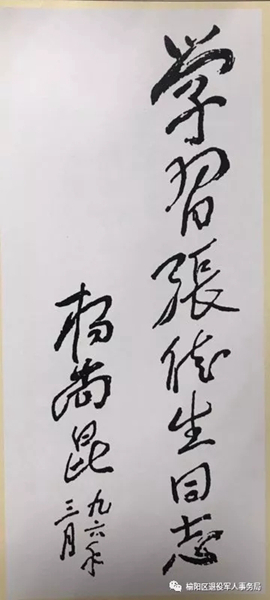 学習張德生同志
杨尚昆
九六年
三月
榆阳区退役军人事务局